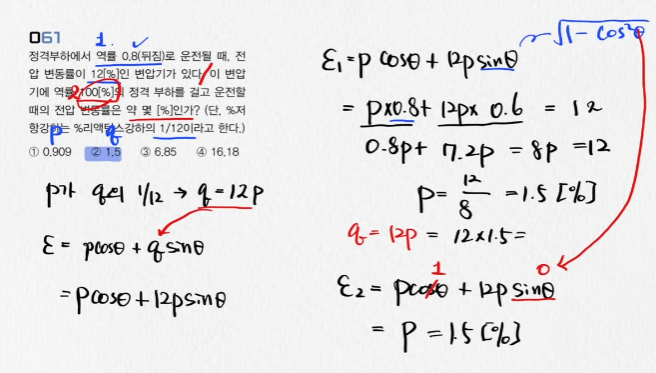 061
1.
정격부하에서 역률 0.8(뒤짐)로 운전될 때, 전
압 변동률이 12[%]인 변압기가 있다. 이 변압
2
기에 역률 100[%]의 정격 부하를 걸고 운전할
때의 전압 변동률은 약 몇 [%]인가? (단, %저
항강하는 %리액턴스강하의 1/12이라고 한다.)
p q
① 0.909 ② 1.5 ③ 6.85 ④ 16.18
p가 q의 1/12 → q = 12p
ε = pcosθ + qsinθ
= pcosθ + 12psinθ
ε₁ = p cosθ + 12psinθ
√1 - cos²θ
= p×0.8 + 12p× 0.6 = 12
0.8p + 7.2p = 8p = 12
p = 12/8 = 1.5 [%]
q = 12p = 12×1.5 =
1 0
ε₂ = pcosθ + 12p sinθ
= p = 1.5 [%]